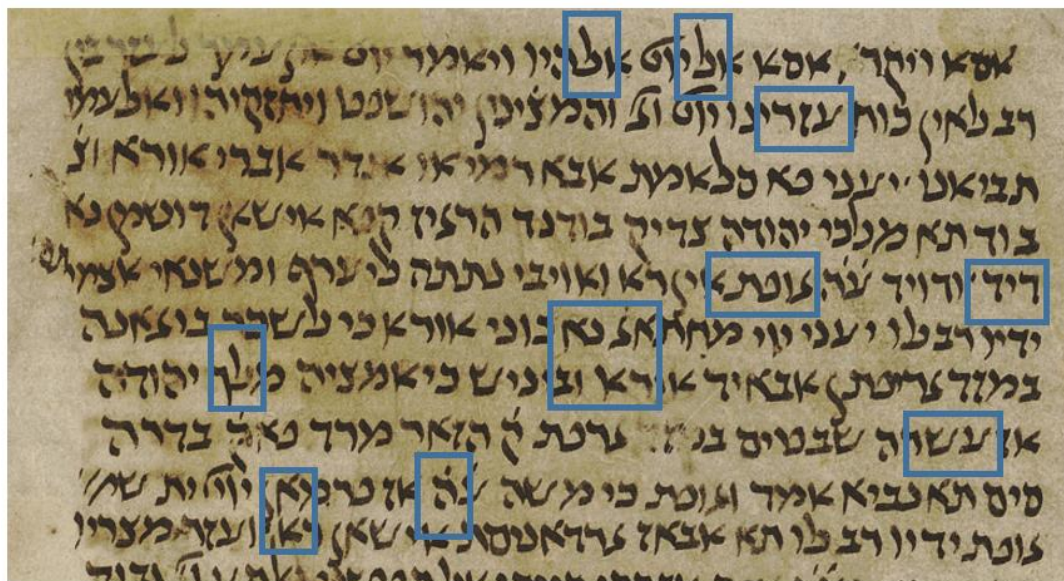 אסא ויקר' אסא אל יוט אלהיו ויאמר יוט אין עמך לעזר בין
רב לאין כוח עזרינו יוט וג והמצינין יהושפט ויחזקיהו
תביאנו יעני תא סלאמת אבאר מי אי אנדר אברי אורא וג
בוד תא מלכי יהודה צדיק בודנד אישאן דושמן נא
דיד ודויד ע'ה גופת אין רא ואויבי נתתה לי ערף ומשנאי אצמי
ידיו רב לו יעני יוי מחתאג נא כוני אורא כי לשכר ביגאנה
במזד גריפתן אבאיד אורא וביניש כי אמציה מלך יהודה
אז עשרה שבטים במזד גרפת ק הזאר מרד בדרה
סיס תא נביא אמד וגופת כי משה ע'ה אז פרמאן
גופת ידיו רב לו תא אבאז גרדאניסת אישאן רא ועזר מצריו